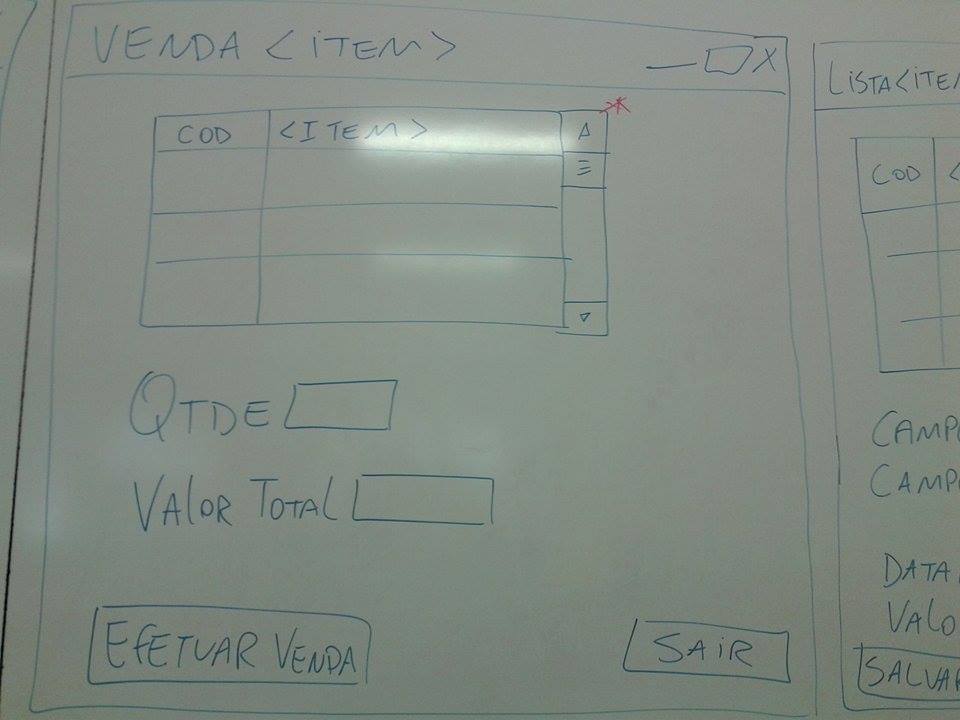 VENDA <ITEM>
X
COD <ITEM>
*
QTDE
VALOR TOTAL
EFETUAR VENDA
SAIR
LISTA<ITEM
COD <
CAMPO
CAMPO
DATA
VALO
SALVAR